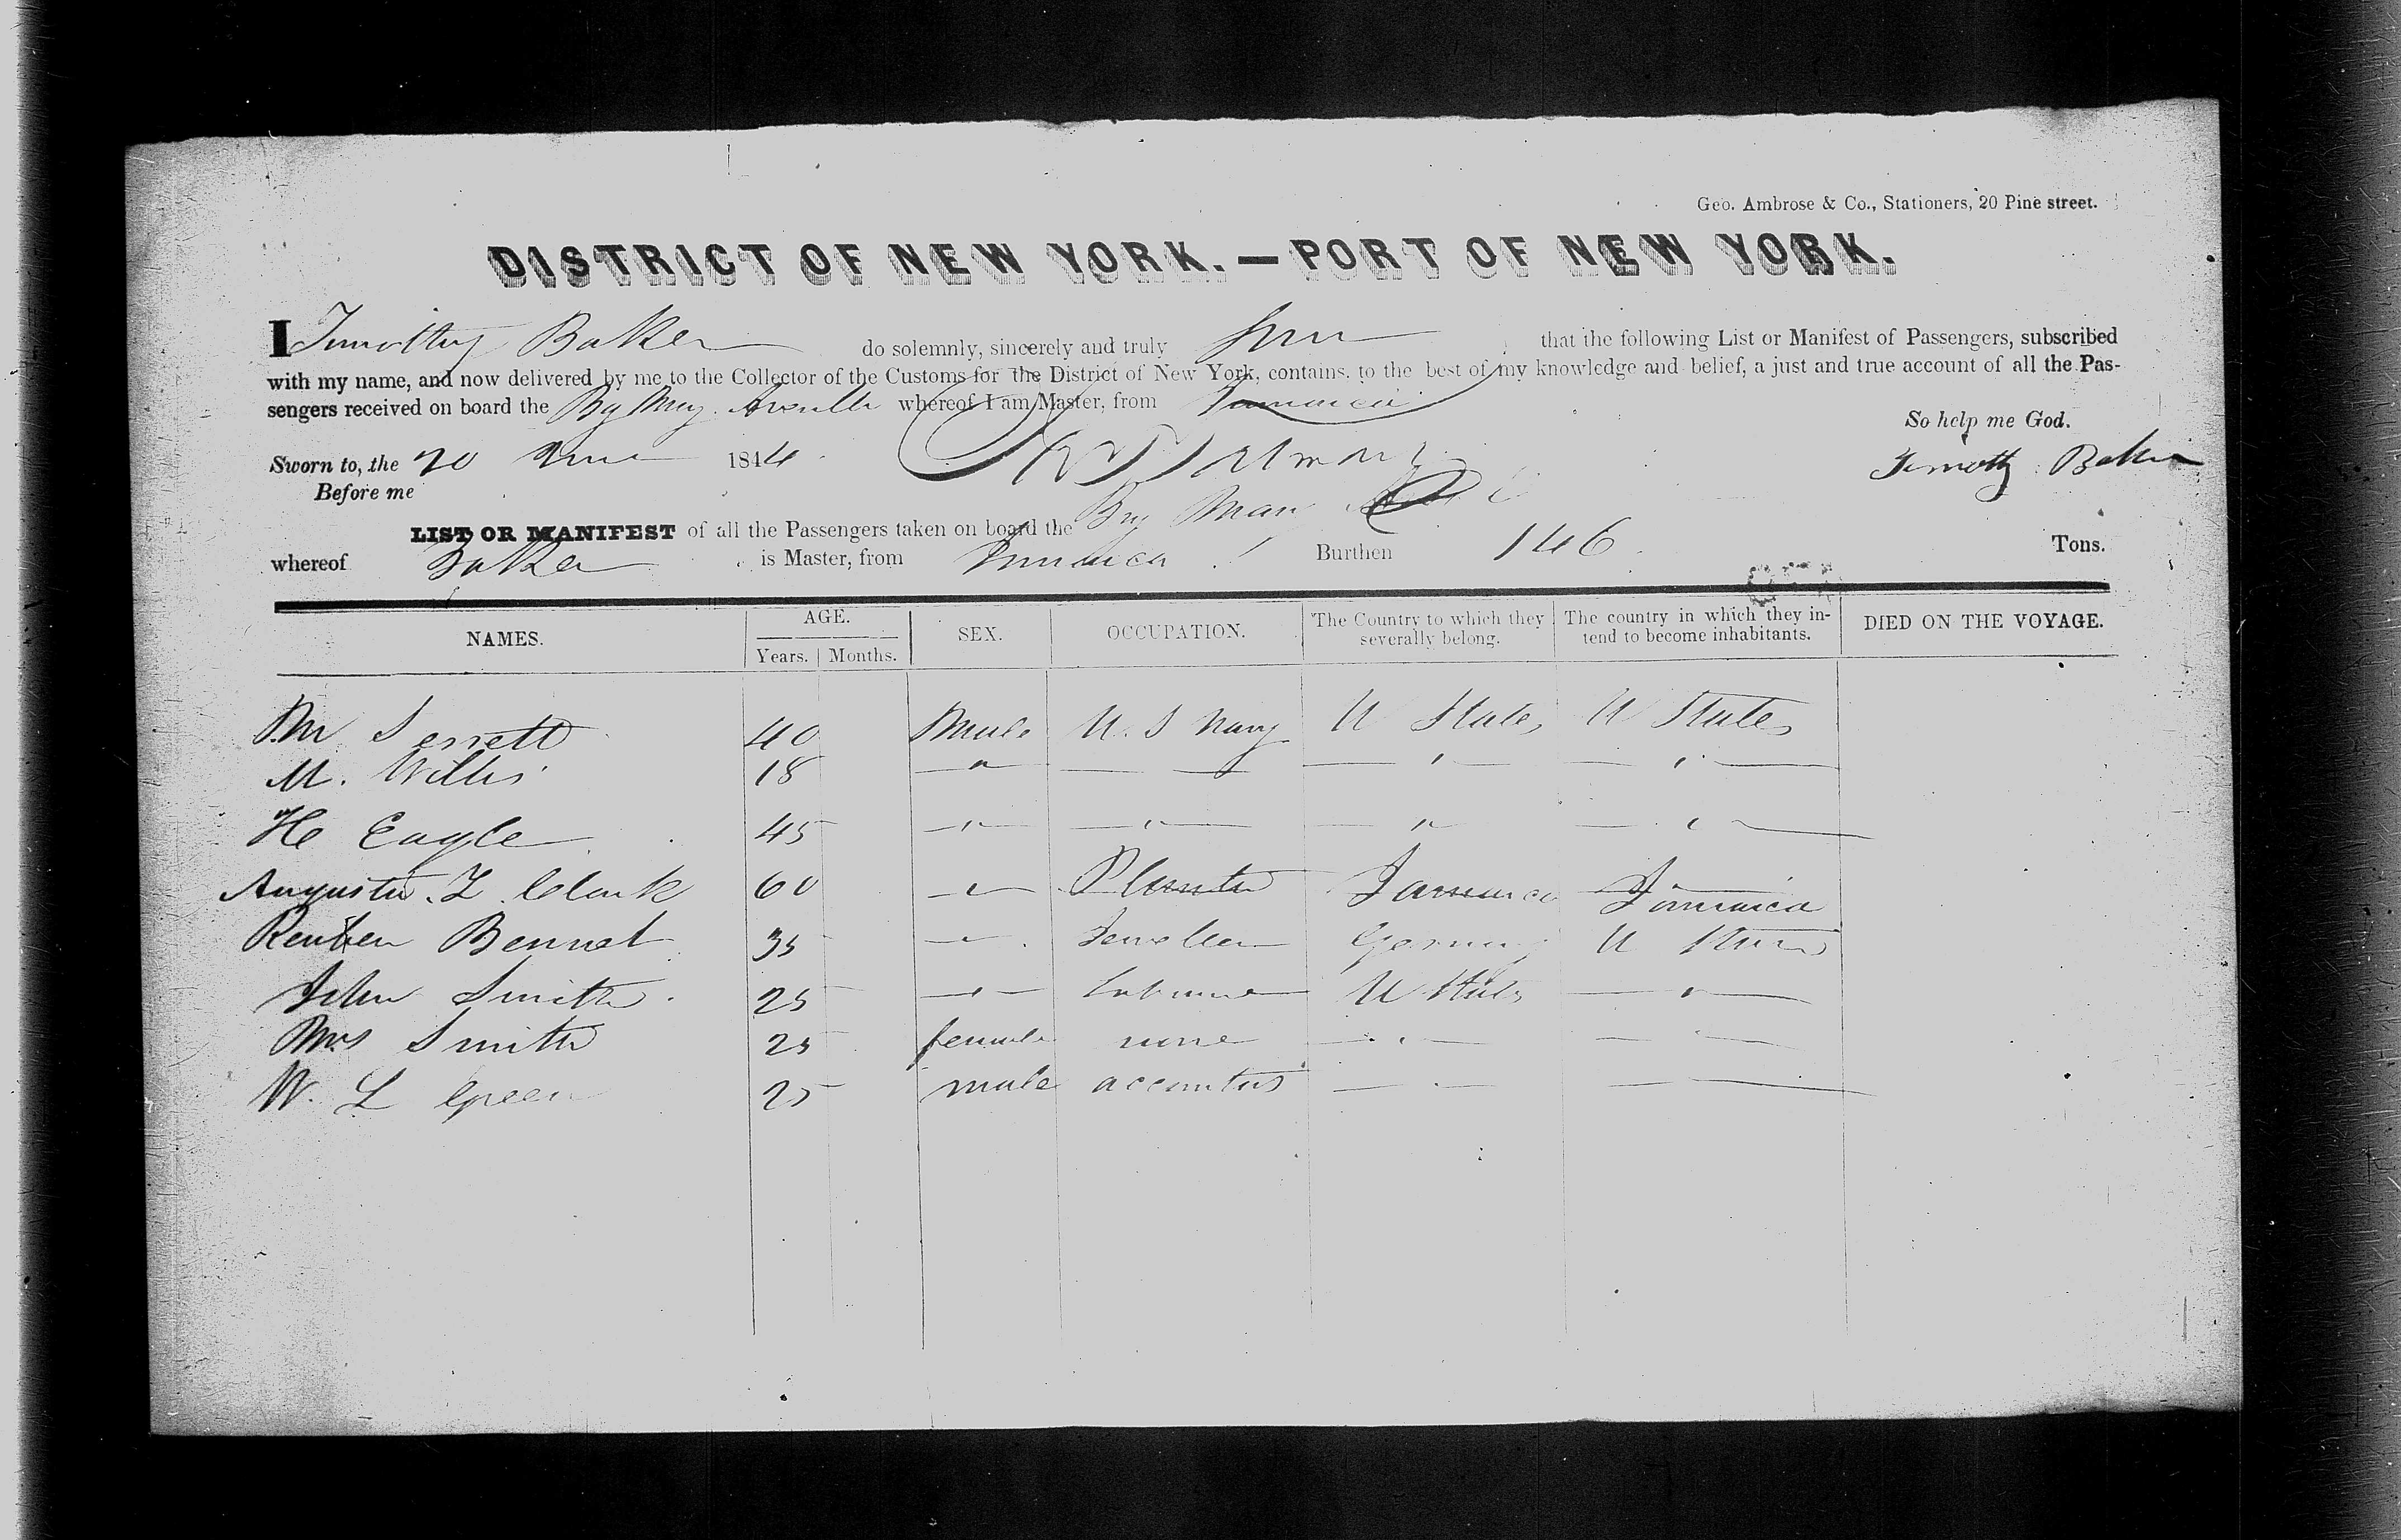 Geo. Ambrose & Co., Stationers, 20 Pine street.
DISTRICT OF NEW YORK.—PORT OF NEW YORK.
I Timothy Baker do solemnly, sincerely and truly that the following List or Manifest of Passengers, subscribed
with my name, and now delivered by me to the Collector of the Customs for the District of New York, contains, to the best of my knowledge and belief, a just and true account of all the Pas-
sengers received on board the whereof I am Master, from Jamaica
So help me God.
Sworn to, the 20 1844 Timothy Baker
Before me
LIST OR MANIFEST of all the Passengers taken on board the Brig
whereof Baker is Master, from Jamaica Burthen 146 Tons.
NAMES. AGE. Years. Months. SEX. OCCUPATION. The Country to which they severally belong. The country in which they in-tend to become inhabitants. DIED ON THE VOYAGE.
Mr 40 Male U. S Navy U States U States
M. Willis 18 " "  "
H Eagle 45 " " " "
Augustus L Clark 60 " Planter Jamaica Jamaica
Reuben Bennet 35 " Jeweller Germany U States
John Smith 25 " U States "
Mrs Smith 25 female none " "
W. L Green 25 male " "